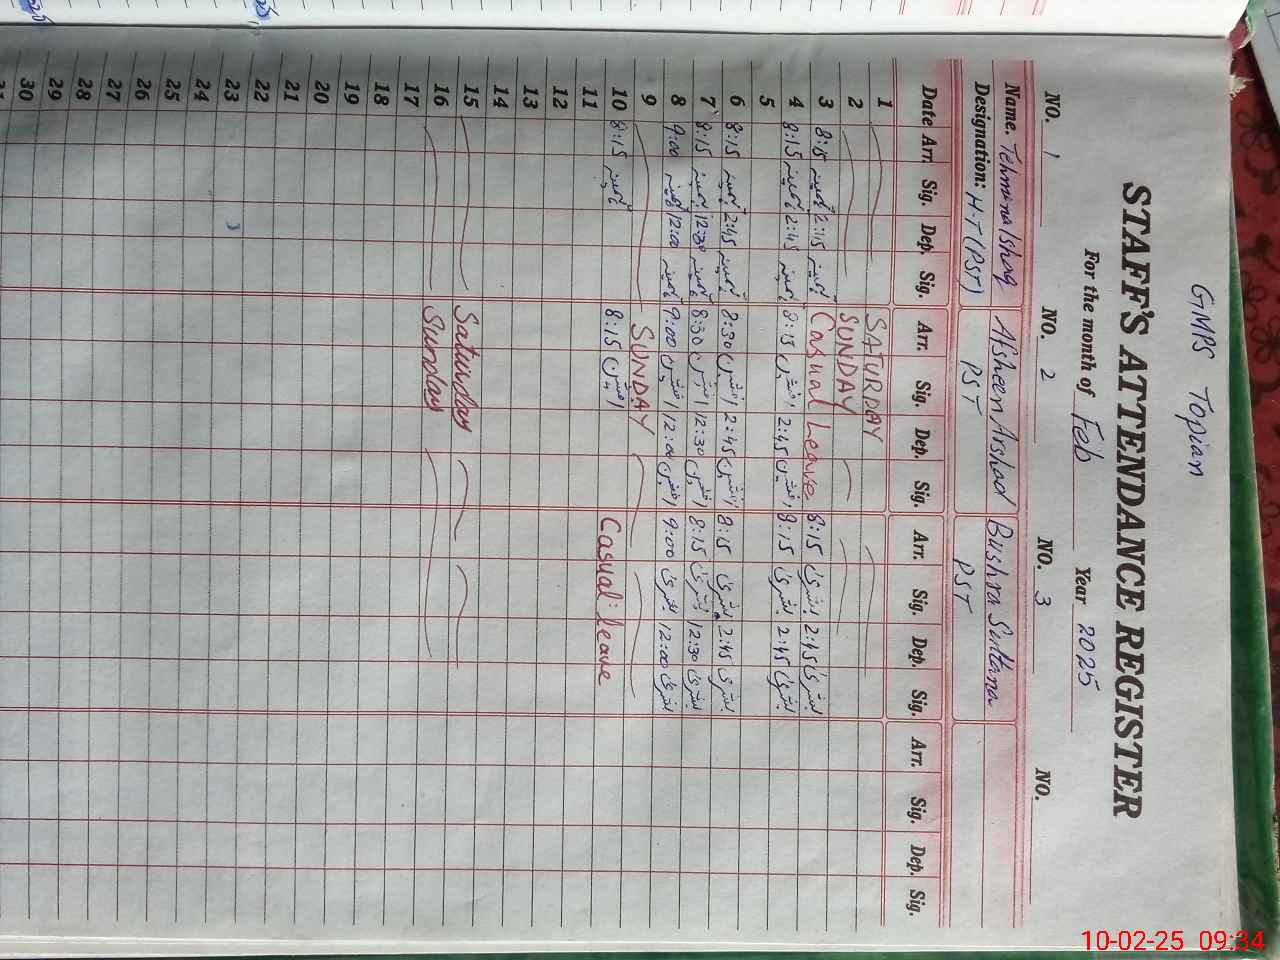 GMPS Topian
STAFF'S ATTENDANCE REGISTER
For the month of Feb Year 2025
NO. 1 NO. 2 NO. 3 NO.
Name. Tehmina Ishaq Afsheen Arshad Bushra Sultana
Designation: H-T (PST) PST PST
Date Arr. Sig. Dep. Sig. Arr. Sig. Dep. Sig. Arr. Sig. Dep. Sig. Arr. Sig. Dep. Sig.
1 SATURDAY
2 SUNDAY
3 8:15 تہمینہ 2:15 تہمینہ Casual Leave 8:15 بشریٰ 2:45 بشریٰ
4 8:15 تہمینہ 2:45 تہمینہ 8:15 افشین 2:45 افشین 8:15 بشریٰ 2:45 بشریٰ
5
6 8:15 تہمینہ 2:45 تہمینہ 8:30 افشین 2:45 افشین 8:15 بشریٰ 2:45 بشریٰ
7 8:15 تہمینہ 12:30 تہمینہ 8:30 افشین 12:30 افشین 8:15 بشریٰ 12:30 بشریٰ
8 9:00 تہمینہ 12:00 تہمینہ 9:00 افشین 12:00 افشین 9:00 بشریٰ 12:00 بشریٰ
9 SUNDAY
10 8:15 تہمینہ 8:15 افشین Casual leave
11
12
13
14
15 Saturday
16 Sunday
17
18
19
20
21
22
23
24
25
26
27
28
29
30
31
10-02-25 09:34